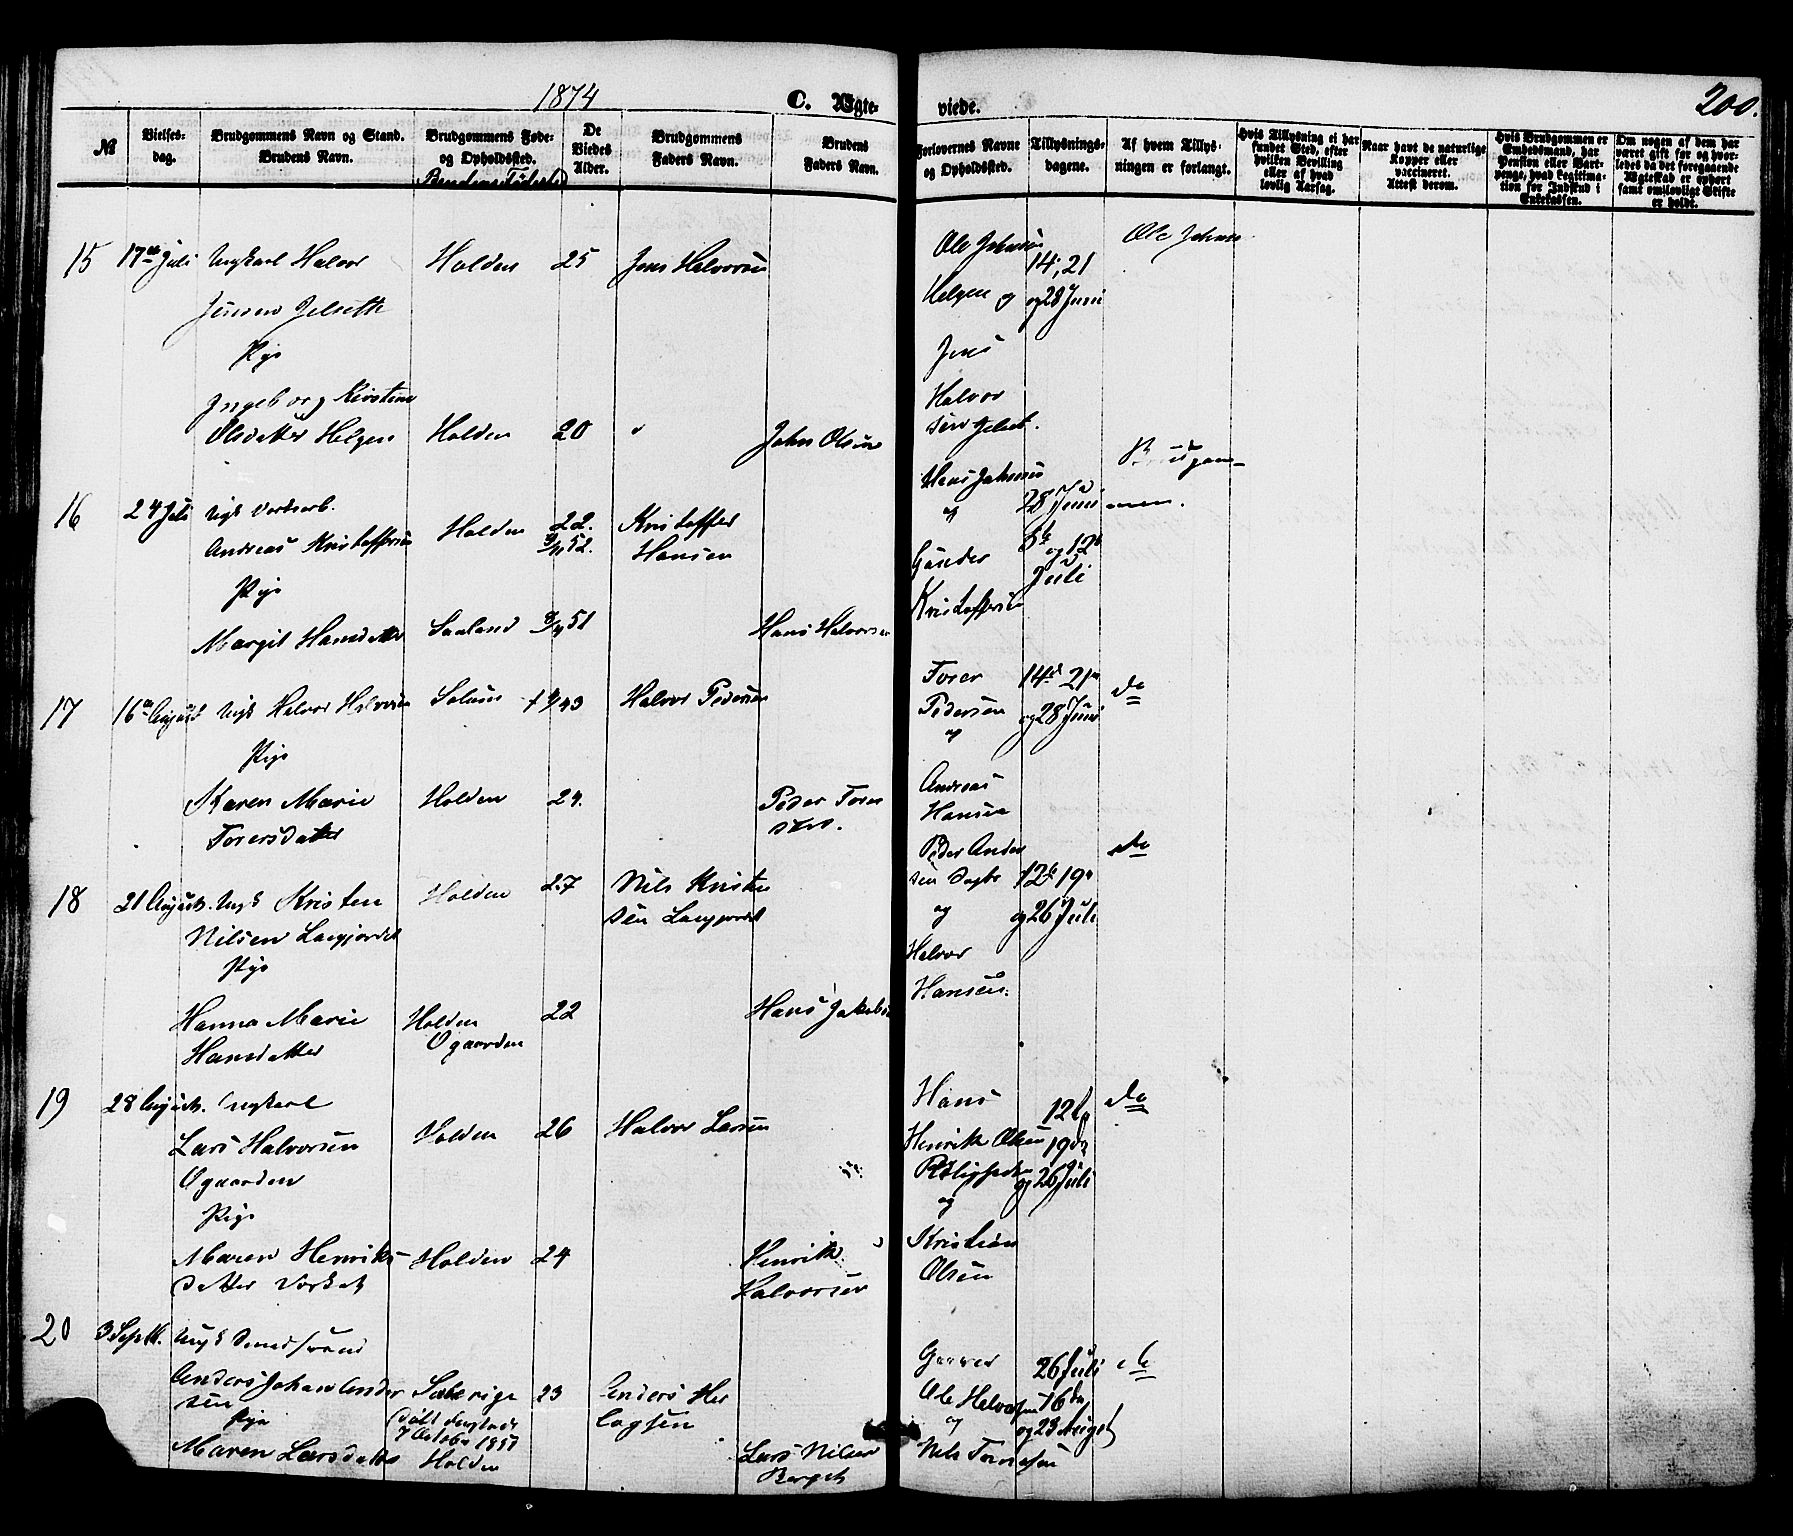 1874
C. Ægteviede.
200.
No
Vielses-dag.
Brudgommens Navn og Stand. Brudens Navn.
Brudgommens Føde- og Opholdssted.
Brudens Fødested
De Viedes Alder.
Brudgommens Faders Navn.
Brudens Faders Navn.
Forlovernes Navne og Opholdssted.
Tillysningsdagene.
Af hvem Tillysningen er forlangt.
Hvis Tillysning ei har fundet Sted, efter hvilken Bevilling eller af hvad lovlig Aarsag.
Naar havt de naturlige Kopper eller vaccineret. Attest derom.
Hvis Brudgommen er Embedsmand, har Pension eller Vartpenge, hvad Legitimation for Indskud i Enkekassen.
Om nogen af dem har været gift før og hvorledes da det foregaaende Ægteskab er ophørt samt om lovligt Skifte er holdt.
15 17de Juli Ungkarl Halvor Holden 25 Jens Halvorsen
Jensen Jelseth
Pige
Ingeborg Kirstine
Olsdatter Helgen Holden 20 John Olsen
Ole Johnsen
Helgen og
Jens
Halvor
sen Jelset.
14, 21
og 28 Juni
Ole Johns
16 24 Juli Ungk
Andreas Kristoffersen Holden 22. Kristoffer
Hansen
Pige
Margit Hansdatter Sauland 51 Hans Halvorsen
Hans Johnsen
og
Gunder
Kristoffersen
28 Juni
5te og 12te
Juli
Brudgom-
men.
17 16de August Ungk Halvor Halvorsen Solum Halvor Pedersen
Pige
Karen Marie Holden 24. Peder Torer
Torersdatter sen.
Torer
Pedersen
og
Andreas
Hansen
14de 21de
og 28 Juni
do
18 21 August. Ungk Kristen Holden 27 Nils Kristen
Nilsen Langjordet sen Langjordet
Pige
Hanna Marie Holden 22 Hans Jakobsen
Hansdatter Ogaarden
Peder Ander
sen
og
Halvor
Hansen.
12te 19de
og 26 Juli
do
19 28 August. Ungkarl
Lars Halvorsen Holden 26 Halvor Larsen
Ogaarden
Pige
Maren Henriks Holden 24 Henrik
datter Halvorsen
Hans
Henrik Olsen
og
Kristian
Olsen
12te
19de
og 26 Juli
do
20 3 Septb. Ungk
Anders Johan Ander Sverige 23 Anders Her
sen
lagsen
Pige
7 October 1851
Maren Larsdatter Holden Lars Nilsen
Berget
Ole Halvorsen
og
Nils Torersen
26 Juli
16de
og 23 August
do